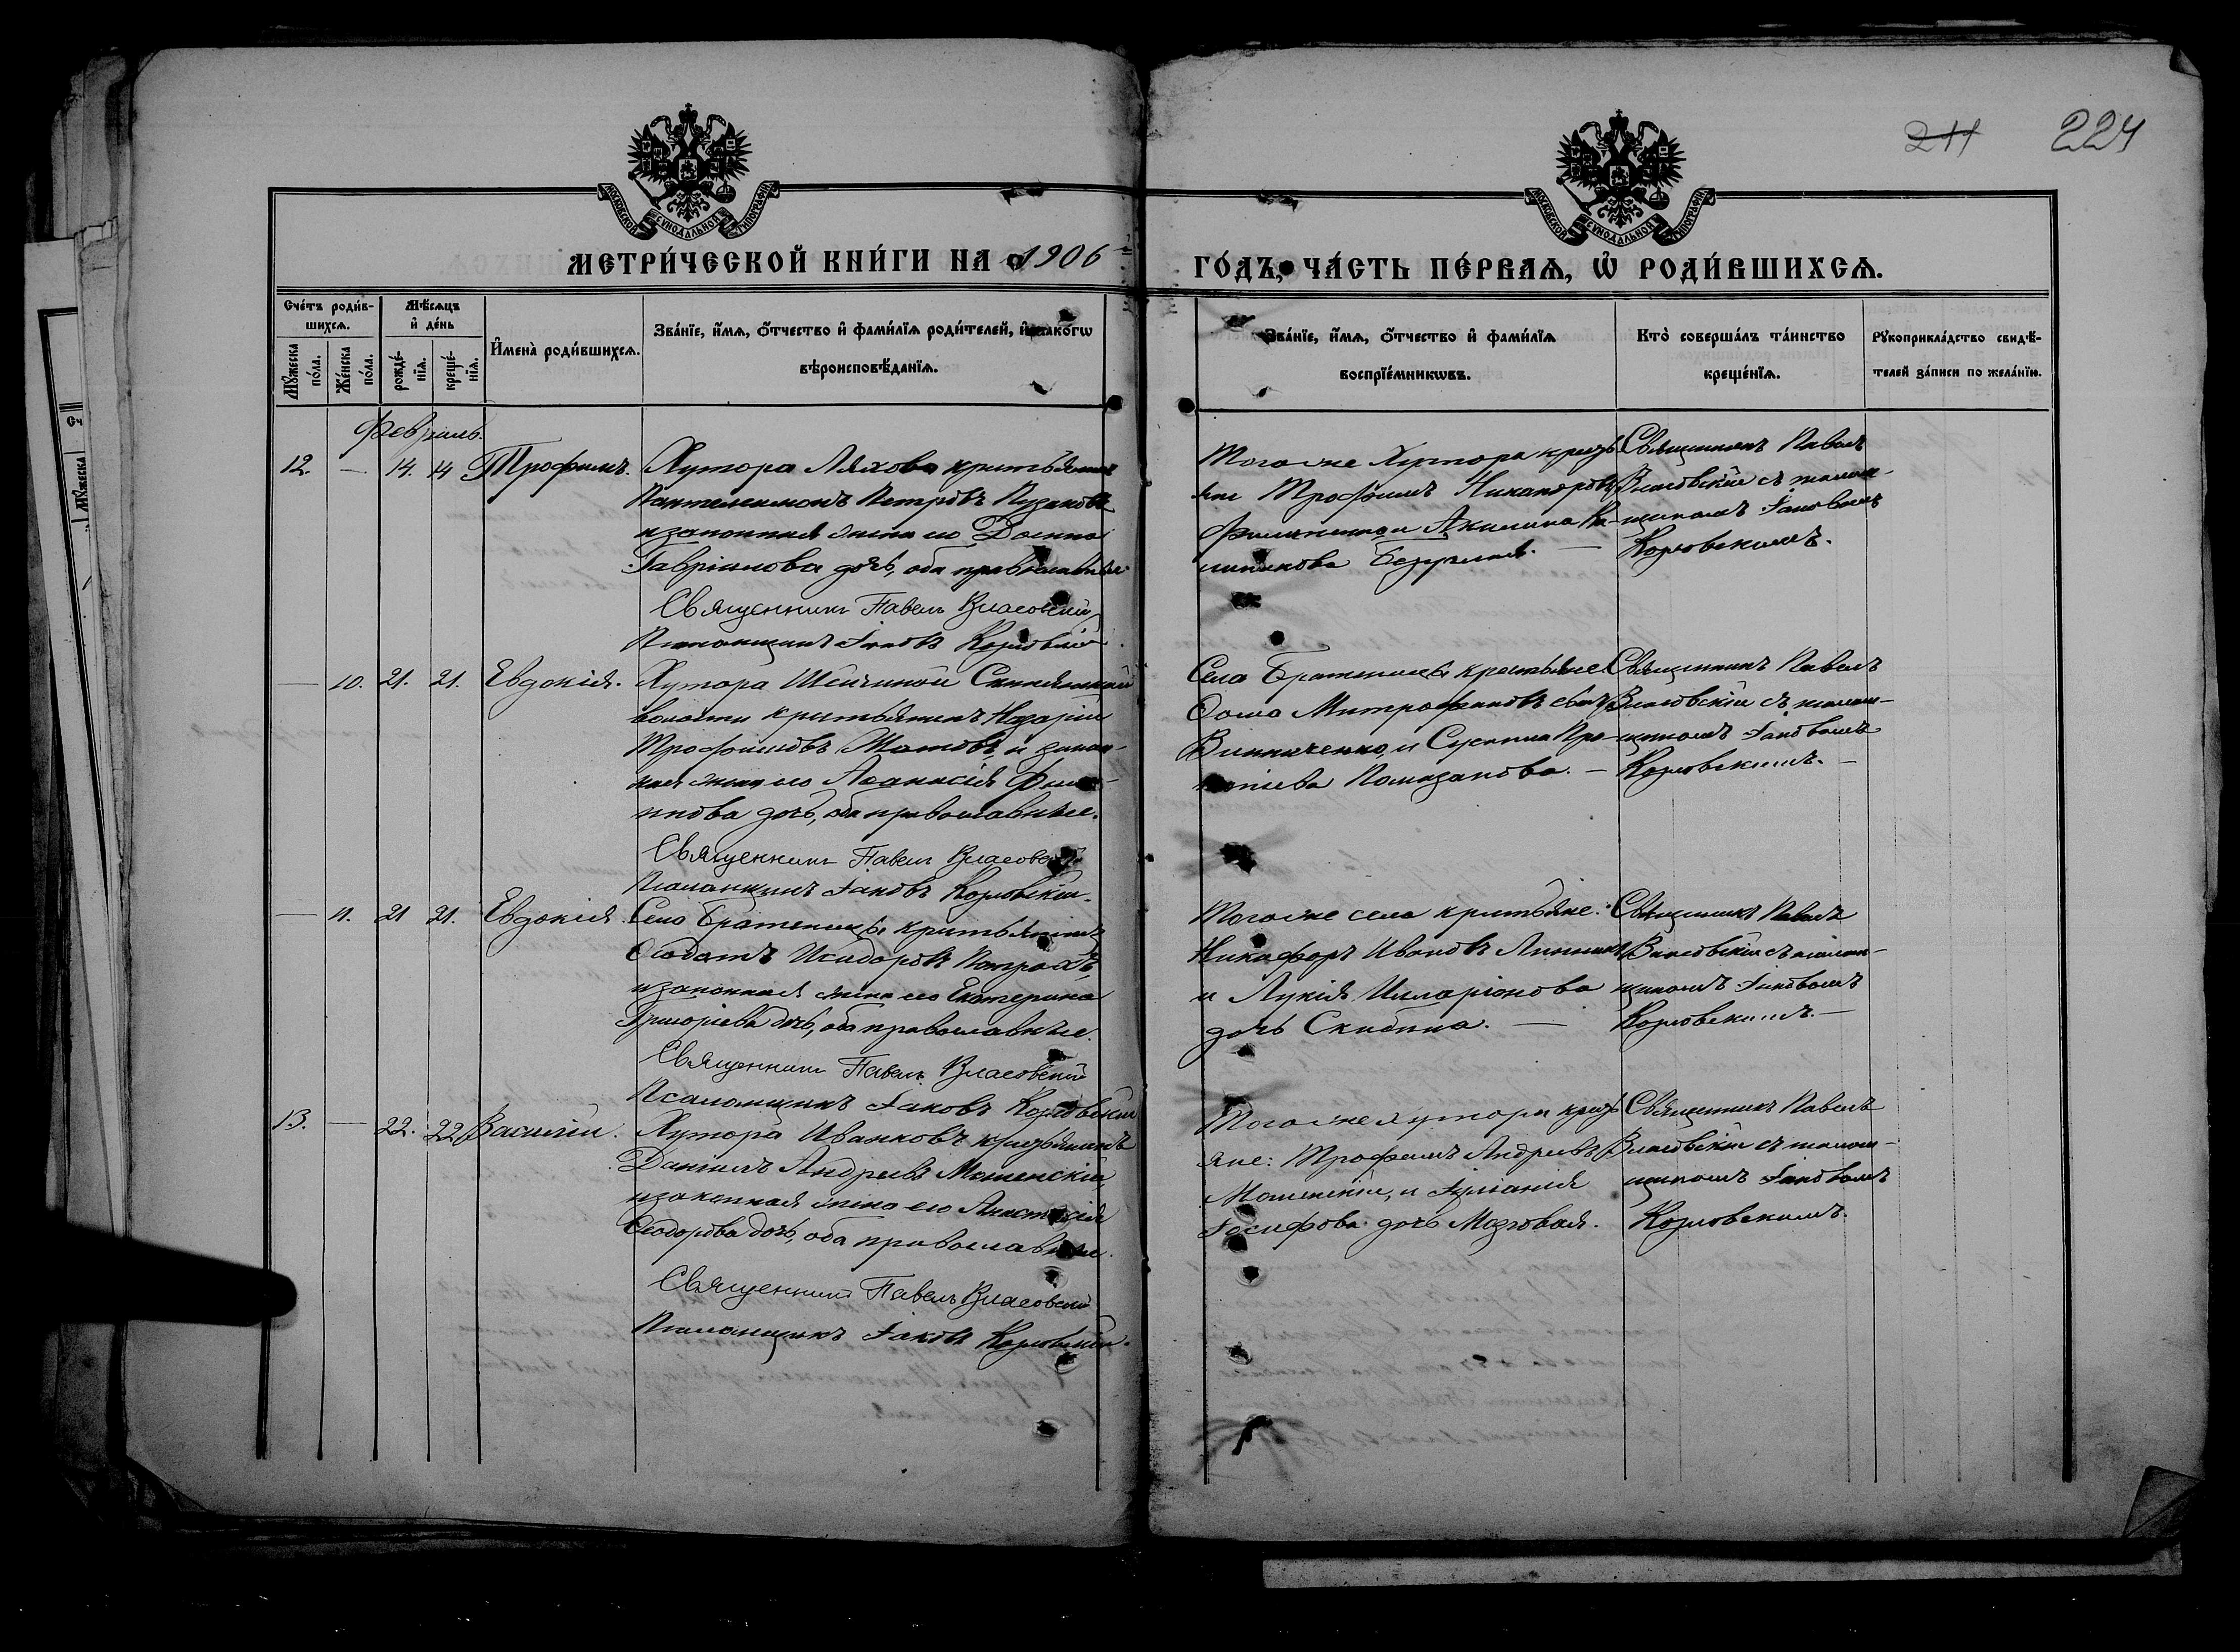 211 224
МОСКОВСКОЙ СѴНОДАЛЬНОЙ ТИПОГРАФІИ
МОСКОВСКОЙ СѴНОДАЛЬНОЙ ТИПОГРАФІИ
МЕТРИ́ЧЕСКОЙ КНИ́ГИ НА 1906
ГО́ДЪ, ЧА́СТЬ ПЕ́РВАѦ, Ѡ҆ РОДИ́ВШИХСѦ.
Сче́тъ роди́в-
шихсѧ.
Мꙋ́жеска по́ла.
Же́нска по́ла.
Мѣ́сѧцъ и҆ де́нь
рожде́-
нїѧ.
креще́-
нїѧ.
И҆мена̀ роди́вшихсѧ.
Зва́нїе, и҆́мѧ, ѻ҆́тчество и҆ фами́лїѧ роди́телей, и҆ како́гѡ
вѣроисповѣ́данїѧ.
Зва́нїе, и҆́мѧ, ѻ҆́тчество и҆ фами́лїѧ
воспрїе́мникѡвъ.
Кто̀ соверша́лъ та́инство
креще́нїѧ.
Рꙋкоприкла́дство свидѣ́-
телей за́писи по жела́нїю.
Февраль.
12. — 14. 14 Трофимъ.
Хутора Ляхова крестьянинъ
Пантелеимонъ Петровъ Пузановъ
и законная жена его Домна
Гавріилова дочь, оба православные
Священникъ Павелъ Власовскій
Псаломщикъ Іаковъ Корловскій
Того же Хутора кресть
Трофимъ Никаноровъ
Филипенко и Акилина
Священникъ Павелъ
Власовскій съ псалом-
щикомъ Іаковомъ
Корловскимъ.
— 10. 21. 21. Евдокія.
Хутора Шейчиной
волости крестьянинъ Назарій
Трофимовъ и закон-
ная жена его Аѳанасія Фили-
пова дочь, оба православные.
Священникъ Павелъ Власовскій
Псаломщикъ Іаковъ Корловскій.
Села Братеницы крестьяне
Ѳома Митрофановъ сынъ
Винниченко и Сусанна Про-
Помазанова. —
Священникъ Павелъ
Власовскій съ псалом-
щикомъ Іаковомъ
Корловскимъ. —
— 11. 21 21. Евдокія.
Село Братеницы крестьянинъ
Ѳеодотъ Исидоровъ
и законная жена его Екатерина
Григорьева дочь, оба православные.
Священникъ Павелъ Власовскій
Псаломщикъ Іаковъ Корловскій
Того же села крестьяне:
Никифоръ Ивановъ Линникъ
и Лукія Илларіонова
дочь Скибина. —
Священникъ Павелъ
Власовскій съ псалом-
щикомъ Іаковомъ
Корловскимъ. —
13. — 22. 22 Василій.
Хутора Иванковъ крестьянинъ
Даніилъ Андреевъ Мошенскій,
и законная жена его Анастасія
Ѳеодорова дочь, оба православные.
Священникъ Павелъ Власовскій
Псаломщикъ Іаковъ Корловскій.
Того же хутора кресть
яне: Трофимъ Андреевъ
Мошенскій, и Іуліанія
Іосифова дочь Мозговая.
Священникъ Павелъ
Власовскій съ псалом-
щикомъ Іаковомъ
Корловскимъ.